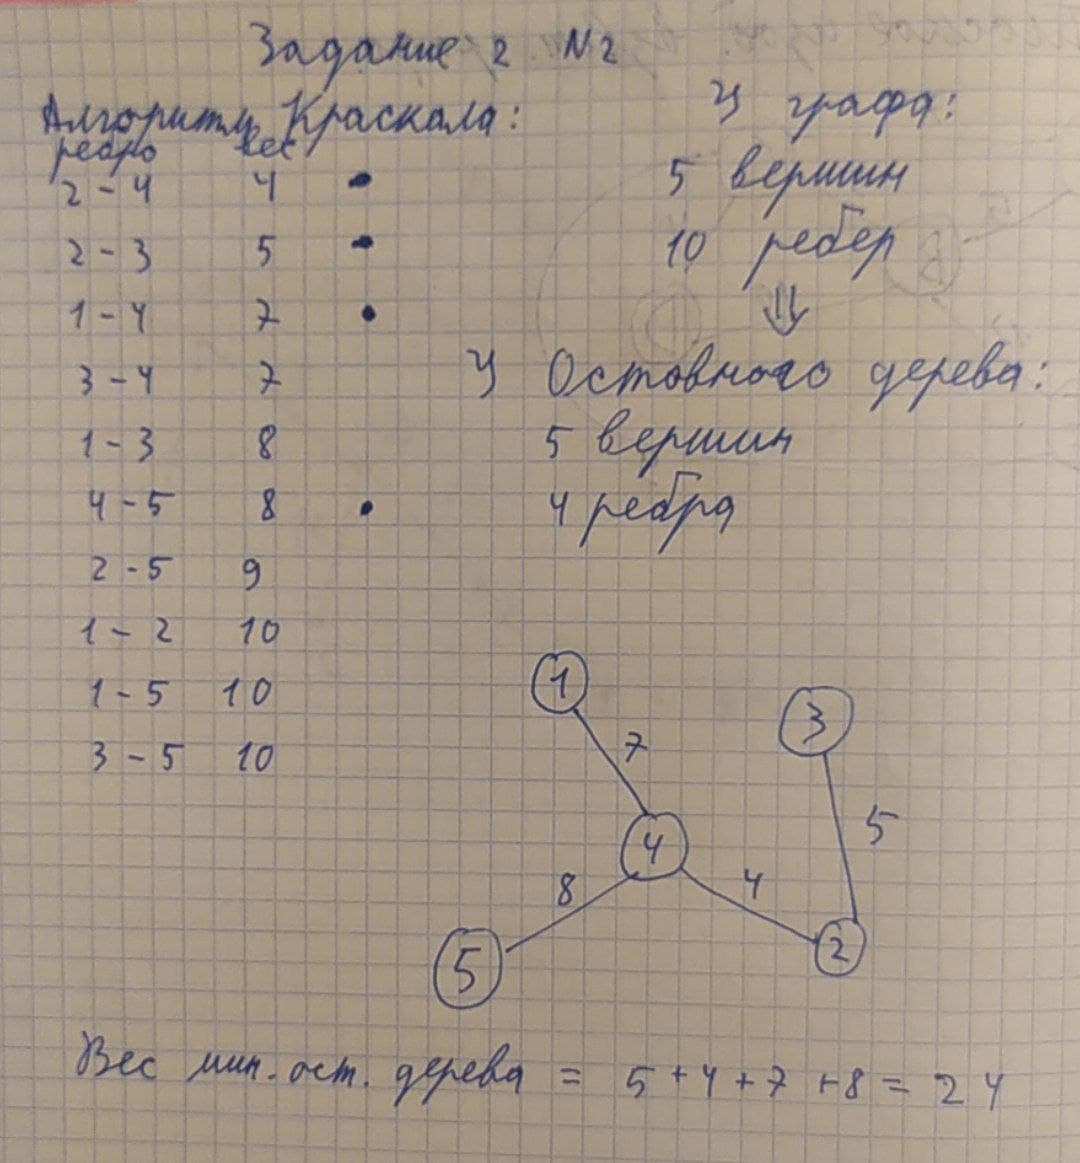 Задание 2 №2
Алгоритм Краскала:
ребро вес
2-4 4 •
2-3 5 •
1-4 7 •
3-4 7
1-3 8
4-5 8 •
2-5 9
1-2 10
1-5 10
3-5 10
У графа:
5 вершин
10 ребер
⇓
У Остовного дерева:
5 вершин
4 ребра
1
3
7
5
4
8
4
5
2
Вес мин. ост. дерева = 5+4+7+8=24